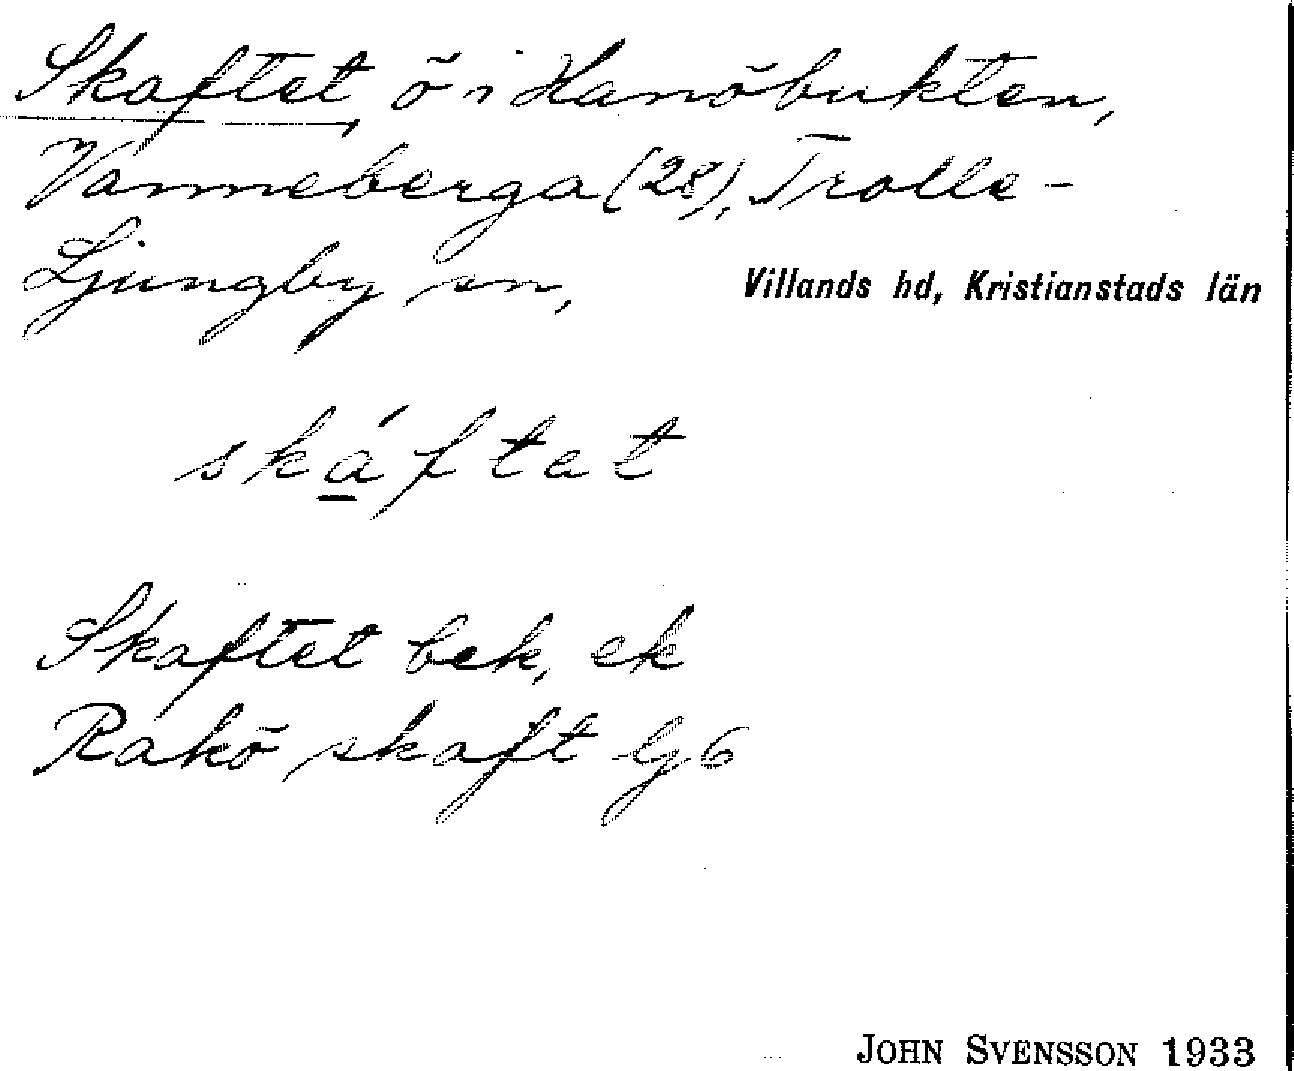 Skaftet, ö i Hanöbukten,
Vanneberga (28), Trolle-
Ljungby sn, Villands hd, Kristianstads län
skáftat
Skaftet bek, ek
Rakö skaft lj 6
JOHN SVENSSON 1933